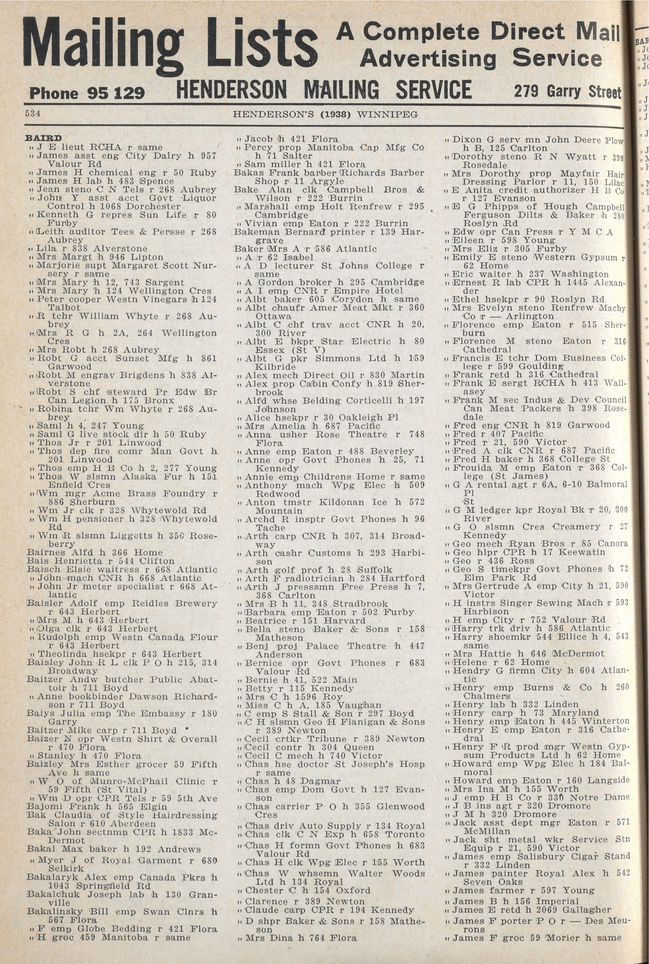 Mailing Lists
A Complete Direct Mail
Advertising Service
Phone 95 129
HENDERSON MAILING SERVICE
279 Garry Street
534
HENDERSON'S (1938) WINNIPEG
BAIRD
" J E lieut RCHA r same
" James asst eng City Dalry h 957
Valour Rd
" James H chemical eng r 50 Ruby
" James H lab h 483 Spence
" Jean steno C N Tels r 268 Aubrey
" John Y asst acct Govt Liquor
Control h 1068 Dorchester
" Kenneth G repres Sun Life r 80
Furby
" Leith auditor Tees & Persse r 268
Aubrey
" Lila r 838 Alverstone
" Mrs Margt h 946 Lipton
" Marjorie supt Margaret Scott Nur-
sery r same
" Mrs Mary h 12, 743 Sargent
" Mrs Mary h 124 Wellington Cres
" Peter cooper Westn Vinegars h 124
Talbot
" R tchr William Whyte r 268 Au-
brey
" Mrs R G h 2A, 264 Wellington
Cres
" Mrs Robt h 268 Aubrey
" Robt G acct Sunset Mfg h 861
Garwood
" Robt M engrav Brigdens h 838 Al-
verstone
" Robt S chf steward Pr Edw Br
Can Legion h 175 Bronx
" Robina tchr Wm Whyte r 268 Au-
brey
" Saml h 4, 247 Young
" Saml G live stock dlr h 50 Ruby
" Thos Jr r 201 Linwood
" Thos dep fire comr Man Govt h
201 Linwood
" Thos emp H B Co h 2, 277 Young
" Thos W slsmn Alaska Fur h 151
Enfield Cres
" Wm mgr Acme Brass Foundry r
886 Sherburn
" Wm Jr clk r 328 Whytewold Rd
" Wm H pensioner h 328 Whytewold
Rd
" Wm R slsmn Liggetts h 350 Rose-
berry
Bairnes Alfd h 366 Home
Bais Henrietta r 544 Clifton
Baisch Elsie waitress r 668 Atlantic
" John mach CNR r 668 Atlantic
" John Jr meter specialist r 668 At-
lantic
Baisler Adolf emp Reidles Brewery
r 643 Herbert
" Mrs M h 643 Herbert
" Olga clk r 643 Herbert
" Rudolph emp Westn Canada Flour
r 643 Herbert
" Theolinda hsekpr r 643 Herbert
Baisley John R L clk P O h 215, 314
Broadway
Baitzer Andw butcher Public Abat-
toir h 711 Boyd
" Anne bookbinder Dawson Richard-
son r 711 Boyd
Baiys Julia emp The Embassy r 180
Garry
Baitzer Mike carp r 711 Boyd
Baizer N opr Westn Shirt & Overall
r 470 Flora
" Stanley h 470 Flora
Baizley Mrs Esther grocer 59 Fifth
Ave h same
" W O of Munro-McPhail Clinic r
59 Fifth (St Vital)
" Wm D opr CPR Tels r 59 5th Ave
Bajomi Frank h 565 Elgin
Bak Claudia of Style Hairdressing
Salon r 610 Aberdeen
Baka John sectnmn CPR h 1833 Mc-
Dermot
Bakal Max baker h 192 Andrews
" Myer J of Royal Garment r 680
Selkirk
Bakalaryk Alex emp Canada Pkrs h
1043 Springfield Rd
Bakalchuk Joseph lab h 130 Gran-
ville
Bakalinsky Bill emp Swan Clnrs h
567 Flora
" F emp Globe Bedding r 421 Flora
" H groc 459 Manitoba r same
" Jacob h 421 Flora
" Percy prop Manitoba Cap Mfg Co
h 71 Salter
" Sam miller h 421 Flora
Bakas Frank barber Richards Barber
Shop r 11 Argyle
Bake Alan clk Campbell Bros &
Wilson r 222 Burrin
" Marshall emp Holt Renfrew r 295
Cambridge
" Vivian emp Eaton r 222 Burrin
Bakeman Bernard printer r 139 Har-
grave
Baker Mrs A r 586 Atlantic
" A r 62 Isabel
" A D lecturer St Johns College r
same
" A Gordon broker h 295 Cambridge
" A I emp CNR r Empire Hotel
" Albt baker 605 Corydon h same
" Albt chaufr Amer Meat Mkt r 360
Ottawa
" Albt C chf trav acct CNR h 20,
300 River
" Albt E bkpr Star Electric h 80
Essex (St V)
" Albt G pkr Simmons Ltd h 159
Kilbride
" Alex mech Direct Oil r 830 Martin
" Alex prop Cabin Confy h 819 Sher-
brook
" Alfd whse Belding Corticelli h 197
Johnson
" Alice hsekpr r 30 Oakleigh Pl
" Mrs Amelia h 687 Pacific
" Anna usher Rose Theatre r 748
Flora
" Anne emp Eaton r 488 Beverley
" Anne opr Govt Phones h 25, 71
Kennedy
" Annie emp Childrens Home r same
" Anthony mach Wpg Elec h 509
Redwood
" Anton tmstr Kildonan Ice h 572
Mountain
" Archd R insptr Govt Phones h 96
Tache
" Arth carp CNR h 307, 314 Broad-
way
" Arth cashr Customs h 293 Harbi-
son
" Arth golf prof h 28 Suffolk
" Arth F radiotrician h 284 Hartford
" Arth J pressmn Free Press h 7,
368 Carlton
" Mrs B h 11, 348 Stradbrook
" Barbara emp Eaton r 502 Furby
" Beatrice r 151 Harvard
" Bella steno Baker & Sons r 158
Matheson
" Benj proj Palace Theatre h 447
Anderson
" Bernice opr Govt Phones r 683
Valour Rd
" Bernie h 41, 522 Main
" Betty r 115 Kennedy
" Mrs C h 1596 Roy
" Miss C h A, 185 Vaughan
" C emp S Stall & Son r 297 Boyd
" C H slsmn Geo H Flanigan & Sons
r 389 Newton
" Cecil crtkr Tribune r 389 Newton
" Cecil contr h 304 Queen
" Cecil C mech h 740 Victor
" Chas hse doctor St Joseph's Hosp
r same
" Chas h 48 Dagmar
" Chas emp Dom Govt h 127 Evan-
son
" Chas carrier P O h 355 Glenwood
Cres
" Chas driv Auto Supply r 134 Royal
" Chas clk C N Exp h 658 Toronto
" Chas H formn Govt Phones h 683
Valour Rd
" Chas H clk Wpg Elec r 155 Worth
" Chas W whsemn Walter Woods
Ltd h 134 Royal
" Chester C h 154 Oxford
" Clarence r 389 Newton
" Claude carp CPR r 194 Kennedy
" D shpr Baker & Sons r 158 Mathe-
son
" Mrs Dina h 764 Flora
" Dixon G serv mn John Deere Plow
h B, 125 Carlton
" Dorothy steno R N Wyatt r 398
Rosedale
" Mrs Dorothy prop Mayfair Hair
Dressing Parlor r 11, 150 Lilac
" E Anita credit authorizer H B Co
r 127 Evanson
" E G Phipps of Hough Campbell
Ferguson Dilts & Baker h 280
Roslyn Rd
" Edw opr Can Press r Y M C A
" Eileen r 598 Young
" Mrs Eliz r 305 Furby
" Emily E steno Western Gypsum r
62 Home
" Eric walter h 237 Washington
" Ernest R lab CPR h 1445 Alexan-
der
" Ethel hsekpr r 90 Roslyn Rd
" Mrs Evelyn steno Renfrew Machy
Co r — Arlington
" Florence emp Eaton r 515 Sher-
burn
" Florence M steno Eaton r 316
Cathedral
" Francis E tchr Dom Business Col-
lege r 599 Goulding
" Frank retd h 316 Cathedral
" Frank E sergt RCHA h 413 Wall-
asey
" Frank M sec Indus & Dev Council
Can Meat Packers h 398 Rose-
dale
" Fred eng CNR h 819 Garwood
" Fred r 407 Pacific
" Fred r 21, 590 Victor
" Fred A clk CNR r 687 Pacific
" Fred H baker h 368 College St
" Frouida M emp Eaton r 368 Col-
lege (St James)
" G A rental agt r 6A, 6-10 Balmoral
Pl
St
" G M ledger kpr Royal Bk r 20, 300
River
" G O slsmn Cres Creamery r 27
Kennedy
" Geo mech Ryan Bros r 85 Canora
" Geo hlpr CPR h 17 Keewatin
" Geo r 436 Ross
" Geo S timekpr Govt Phones h 72
Elm Park Rd
" Mrs Gertrude A emp City h 21, 590
Victor
" H instrs Singer Sewing Mach r 593
Harbison
" H emp City r 752 Valour Rd
" Harry trk driv h 586 Atlantic
" Harry shoemkr 544 Ellice h 4, 543
same
" Mrs Hattie h 646 McDermot
" Helene r 62 Home
" Hendry G firmn City h 604 Atlan-
tic
" Henry emp Burns & Co h 260
Chalmers
" Henry lab h 332 Linden
" Henry carp h 73 Maryland
" Henry emp Eaton h 445 Winterton
" Henry E emp Eaton r 316 Cathe-
dral
" Henry F R prod mgr Westn Gyp-
sum Products Ltd h 62 Home
" Howard emp Wpg Elec h 184 Bal-
moral
" Howard emp Eaton r 160 Langside
" Mrs Ina M h 155 Worth
" J emp H B Co r 336 Notre Dame
" J B ins agt r 320 Dromore
" J M h 320 Dromore
" Jack asst dept mgr Eaton r 571
McMillan
" Jack sht metal wkr Service Stn
Equip r 21, 590 Victor
" James emp Salisbury Cigar Stand
r 332 Linden
" James painter Royal Alex h 542
Seven Oaks
" James farmer r 597 Young
" James B h 156 Imperial
" James E retd h 2069 Gallagher
" James F porter P O r — Des Meu-
rons
" James F groc 59 Morier h same